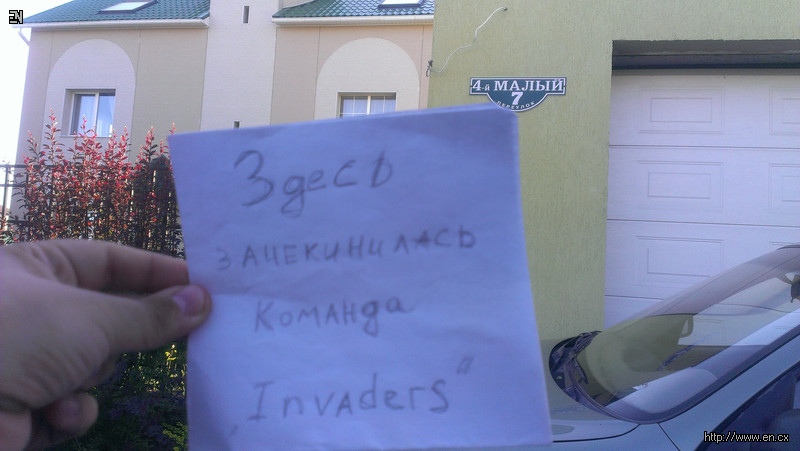 EN
4-й МАЛЫЙ
7
ПЕРЕУЛОК
Здесь
зачекинилась
Команда
„Invaders“
http://www.en.cx